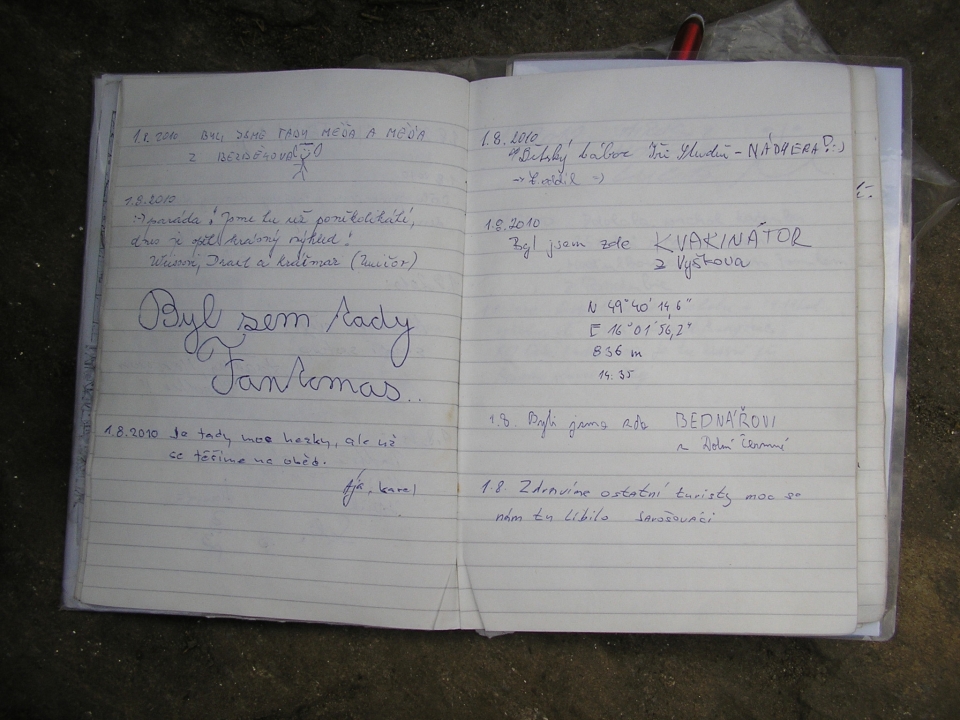 1.8.2010 BYLI JSME TADY MÉĎA A MÉĎA
Z BEZDĚKOVA
1.8.2010
:-) paráda! Jsme tu už poněkolikáté,
dnes je opět krásný výhled!
a (Junior)
Byl sem tady
Fantomas..
1.8.2010 Je tady moc hezky, ale už
se těšíme na oběd.
Ája, Karel
1.8.2010
Dětský tábor Tři Studně - NÁDHERA! :-)
1.8.2010
Byl jsem zde KVAKINÁTOR
z Vyškova
N 49°40'14,6"
E 16°01'56,2"
836 m
14:35
1.8. Byli jsme zde BEDNÁŘOVI
z Dolní Čermné
1.8. Zdravíme ostatní turisty moc se
nám tu líbilo